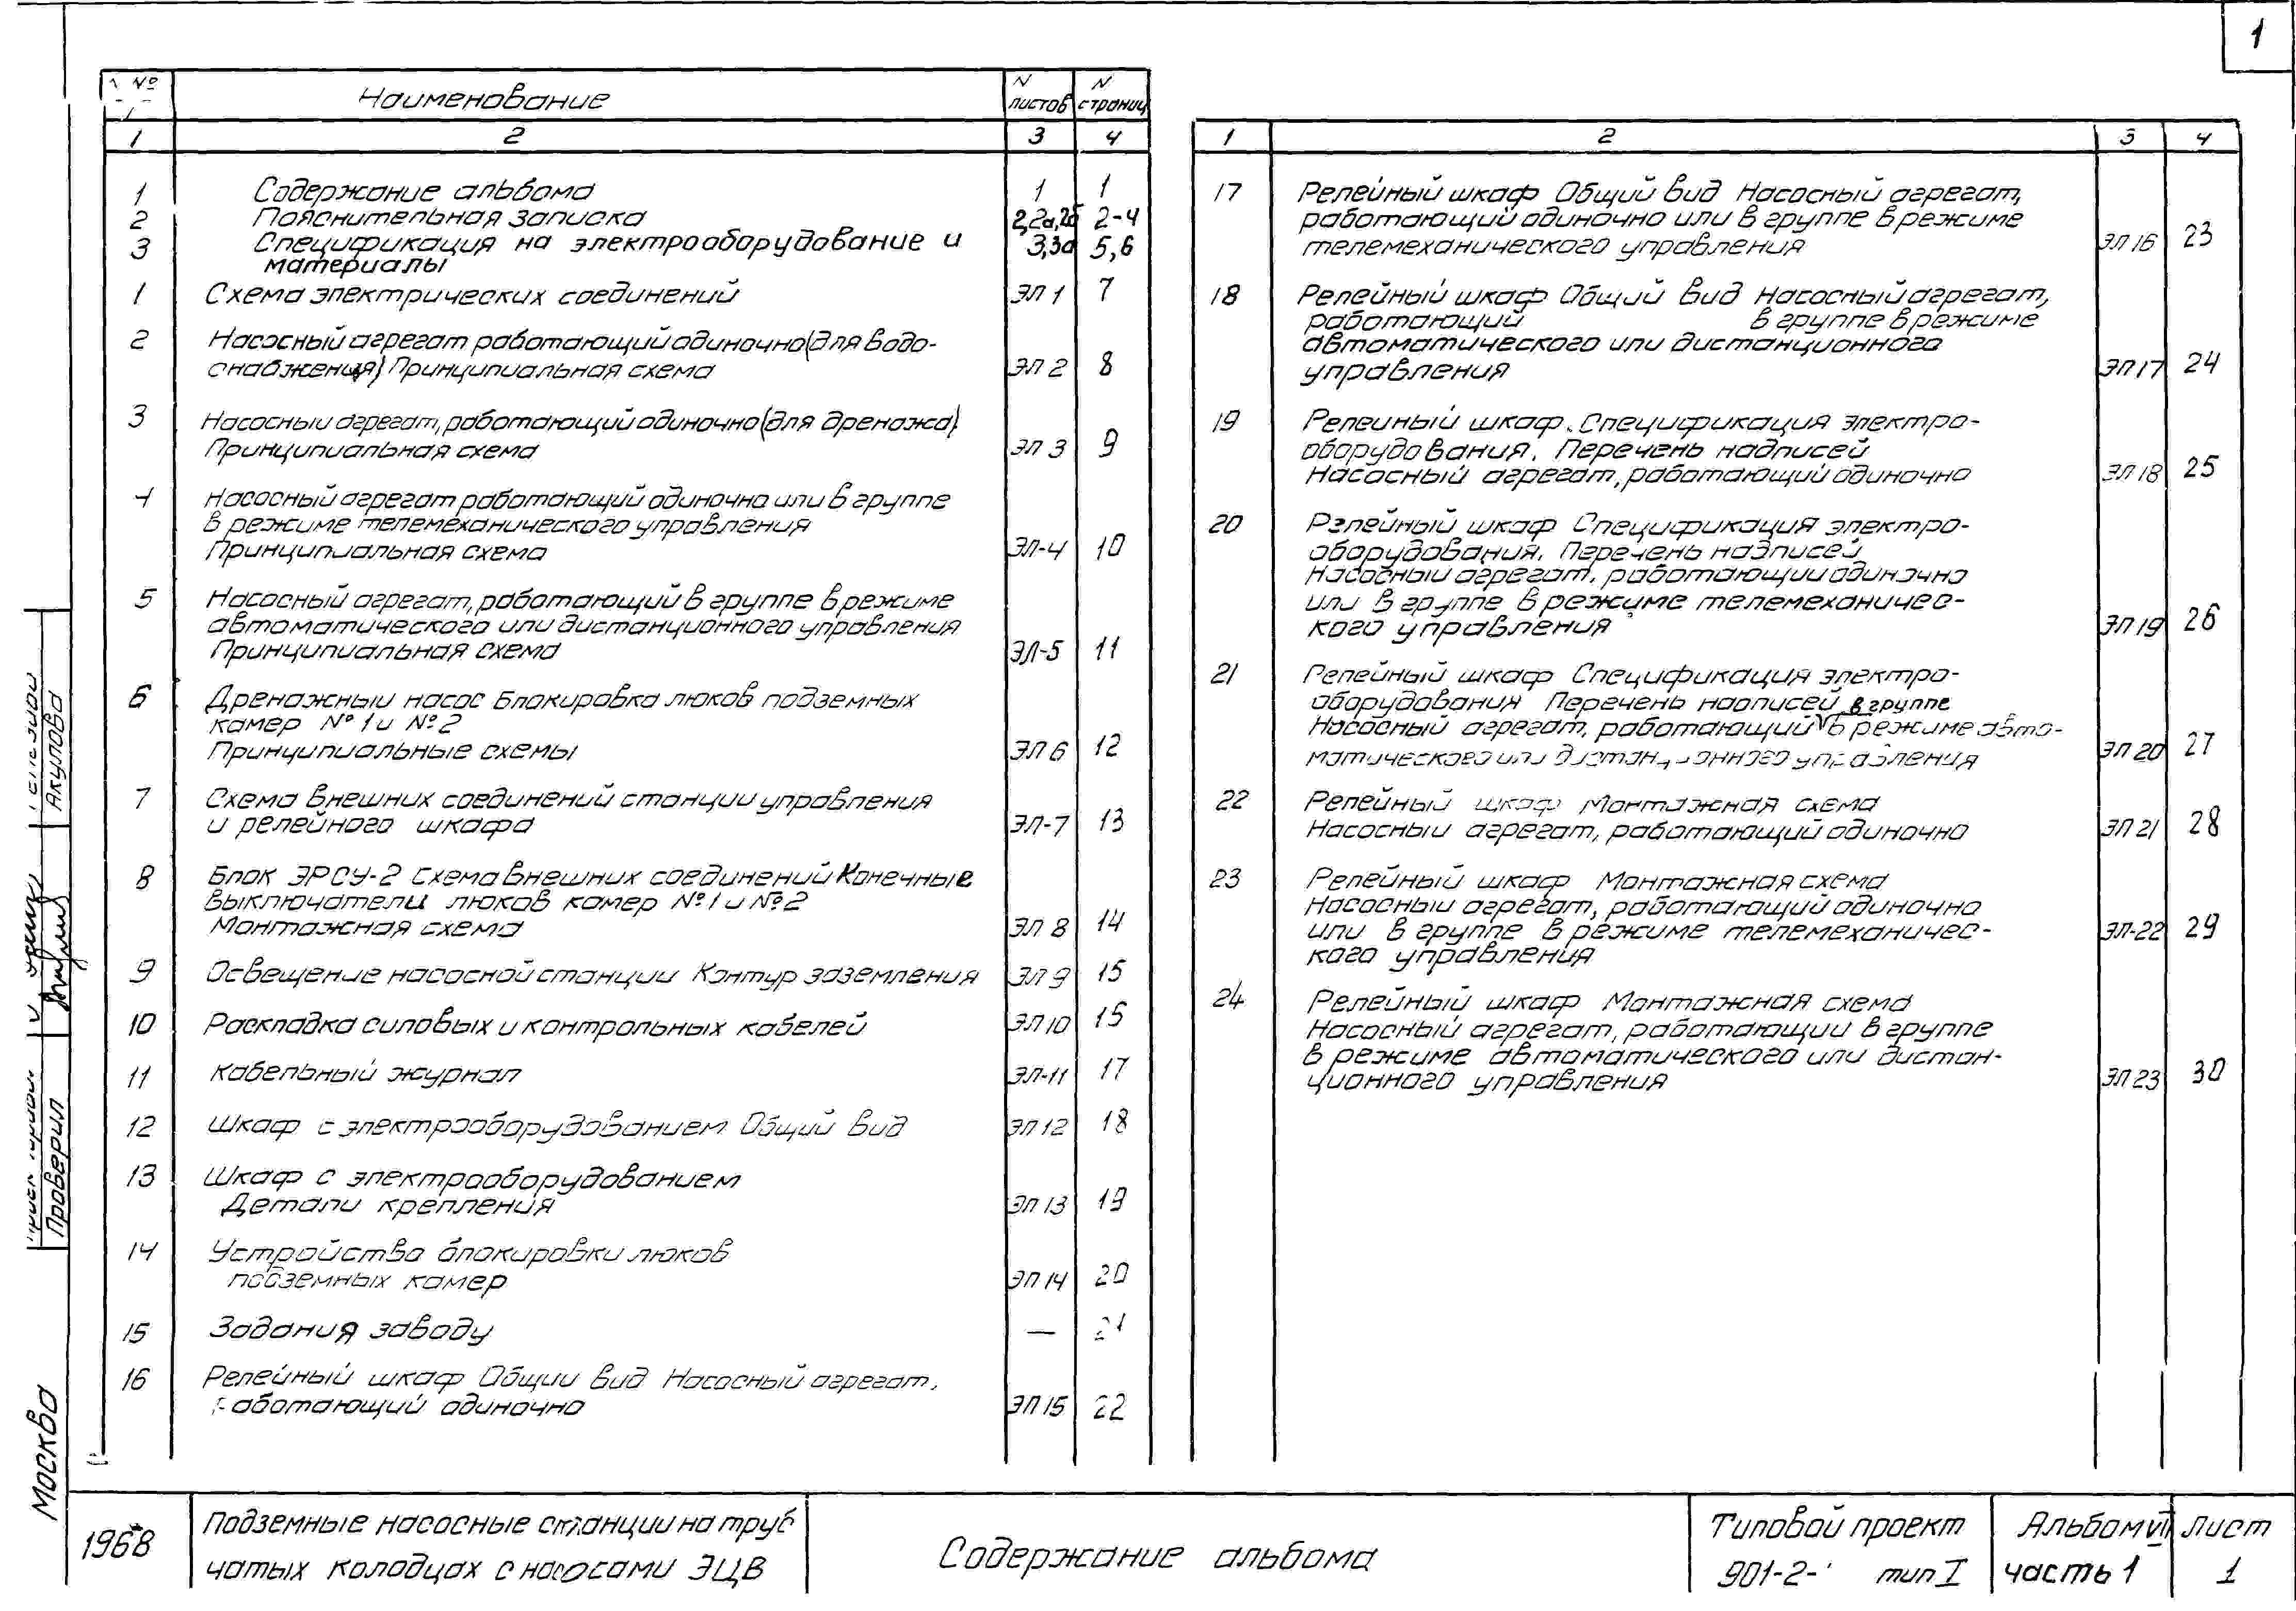 1
№
Наименование
N листов
N страниц
1 2 3 4
1 Содержание альбома 1 1
2 Пояснительная записка 2,2а,2б 2-4
3 Спецификация на электрооборудование и 3,3а 5,6
материалы
1 Схема электрических соединений ЭЛ 1 7
2 Насосный агрегат работающий одиночно (для водо-
снабжения) Принципиальная схема ЭЛ 2 8
3 Насосный агрегат, работающий одиночно (для дренажа)
Принципиальная схема ЭЛ 3 9
4 Насосный агрегат работающий одиночно или в группе
в режиме телемеханического управления
Принципиальная схема ЭЛ-4 10
5 Насосный агрегат, работающий в группе в режиме
автоматического или дистанционного управления
Принципиальная схема ЭЛ-5 11
6 Дренажный насос Блокировка люков подземных
камер №1 и №2
Принципиальные схемы ЭЛ 6 12
7 Схема внешних соединений станции управления
и релейного шкафа ЭЛ-7 13
8 Блок ЭРСУ-2 Схема внешних соединений Конечные
выключатели люков камер №1 и №2
Монтажная схема ЭЛ 8 14
9 Освещение насосной станции Контур заземления ЭЛ 9 15
10 Раскладка силовых и контрольных кабелей ЭЛ 10 16
11 Кабельный журнал ЭЛ-11 17
12 Шкаф с электрооборудованием Общий вид ЭЛ 12 18
13 Шкаф с электрооборудованием
Детали крепления ЭЛ 13 19
14 Устройства блокировки люков
подземных камер ЭЛ 14 20
15 Задания заводу — 21
16 Релейный шкаф Общий вид Насосный агрегат,
работающий одиночно ЭЛ 15 22
1 2 3 4
17 Релейный шкаф Общий вид Насосный агрегат,
работающий одиночно или в группе в режиме
телемеханического управления ЭЛ 16 23
18 Релейный шкаф Общий вид Насосный агрегат,
работающий в группе в режиме
автоматического или дистанционного
управления ЭЛ 17 24
19 Релейный шкаф. Спецификация электро-
оборудования. Перечень надписей
Насосный агрегат, работающий одиночно ЭЛ 18 25
20 Релейный шкаф Спецификация электро-
оборудования. Перечень надписей
Насосный агрегат, работающий одиночно
или в группе в режиме телемеханичес-
кого управления ЭЛ 19 26
21 Релейный шкаф Спецификация электро-
оборудования Перечень надписей в группе
Насосный агрегат, работающий в режиме авто-
матического или дистанционного управления ЭЛ 20 27
22 Релейный шкаф Монтажная схема
Насосный агрегат, работающий одиночно ЭЛ 21 28
23 Релейный шкаф Монтажная схема
Насосный агрегат, работающий одиночно
или в группе в режиме телемеханичес-
кого управления ЭЛ-22 29
24 Релейный шкаф Монтажная схема
Насосный агрегат, работающий в группе
в режиме автоматического или дистан-
ционного управления ЭЛ 23 30
Акулова
Проверил
Москва
1968
Подземные насосные станции на труб
чатых колодцах с насосами ЭЦВ
Содержание альбома
Типовой проект
901-2- тип I
Альбом VII
часть 1
Лист
1